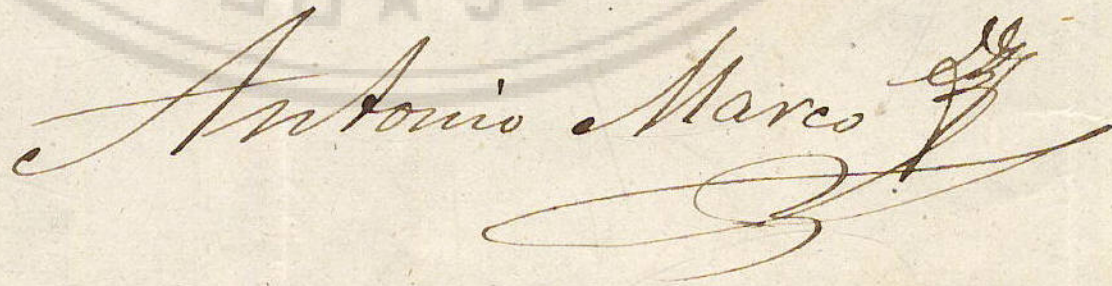 Antonio Marco